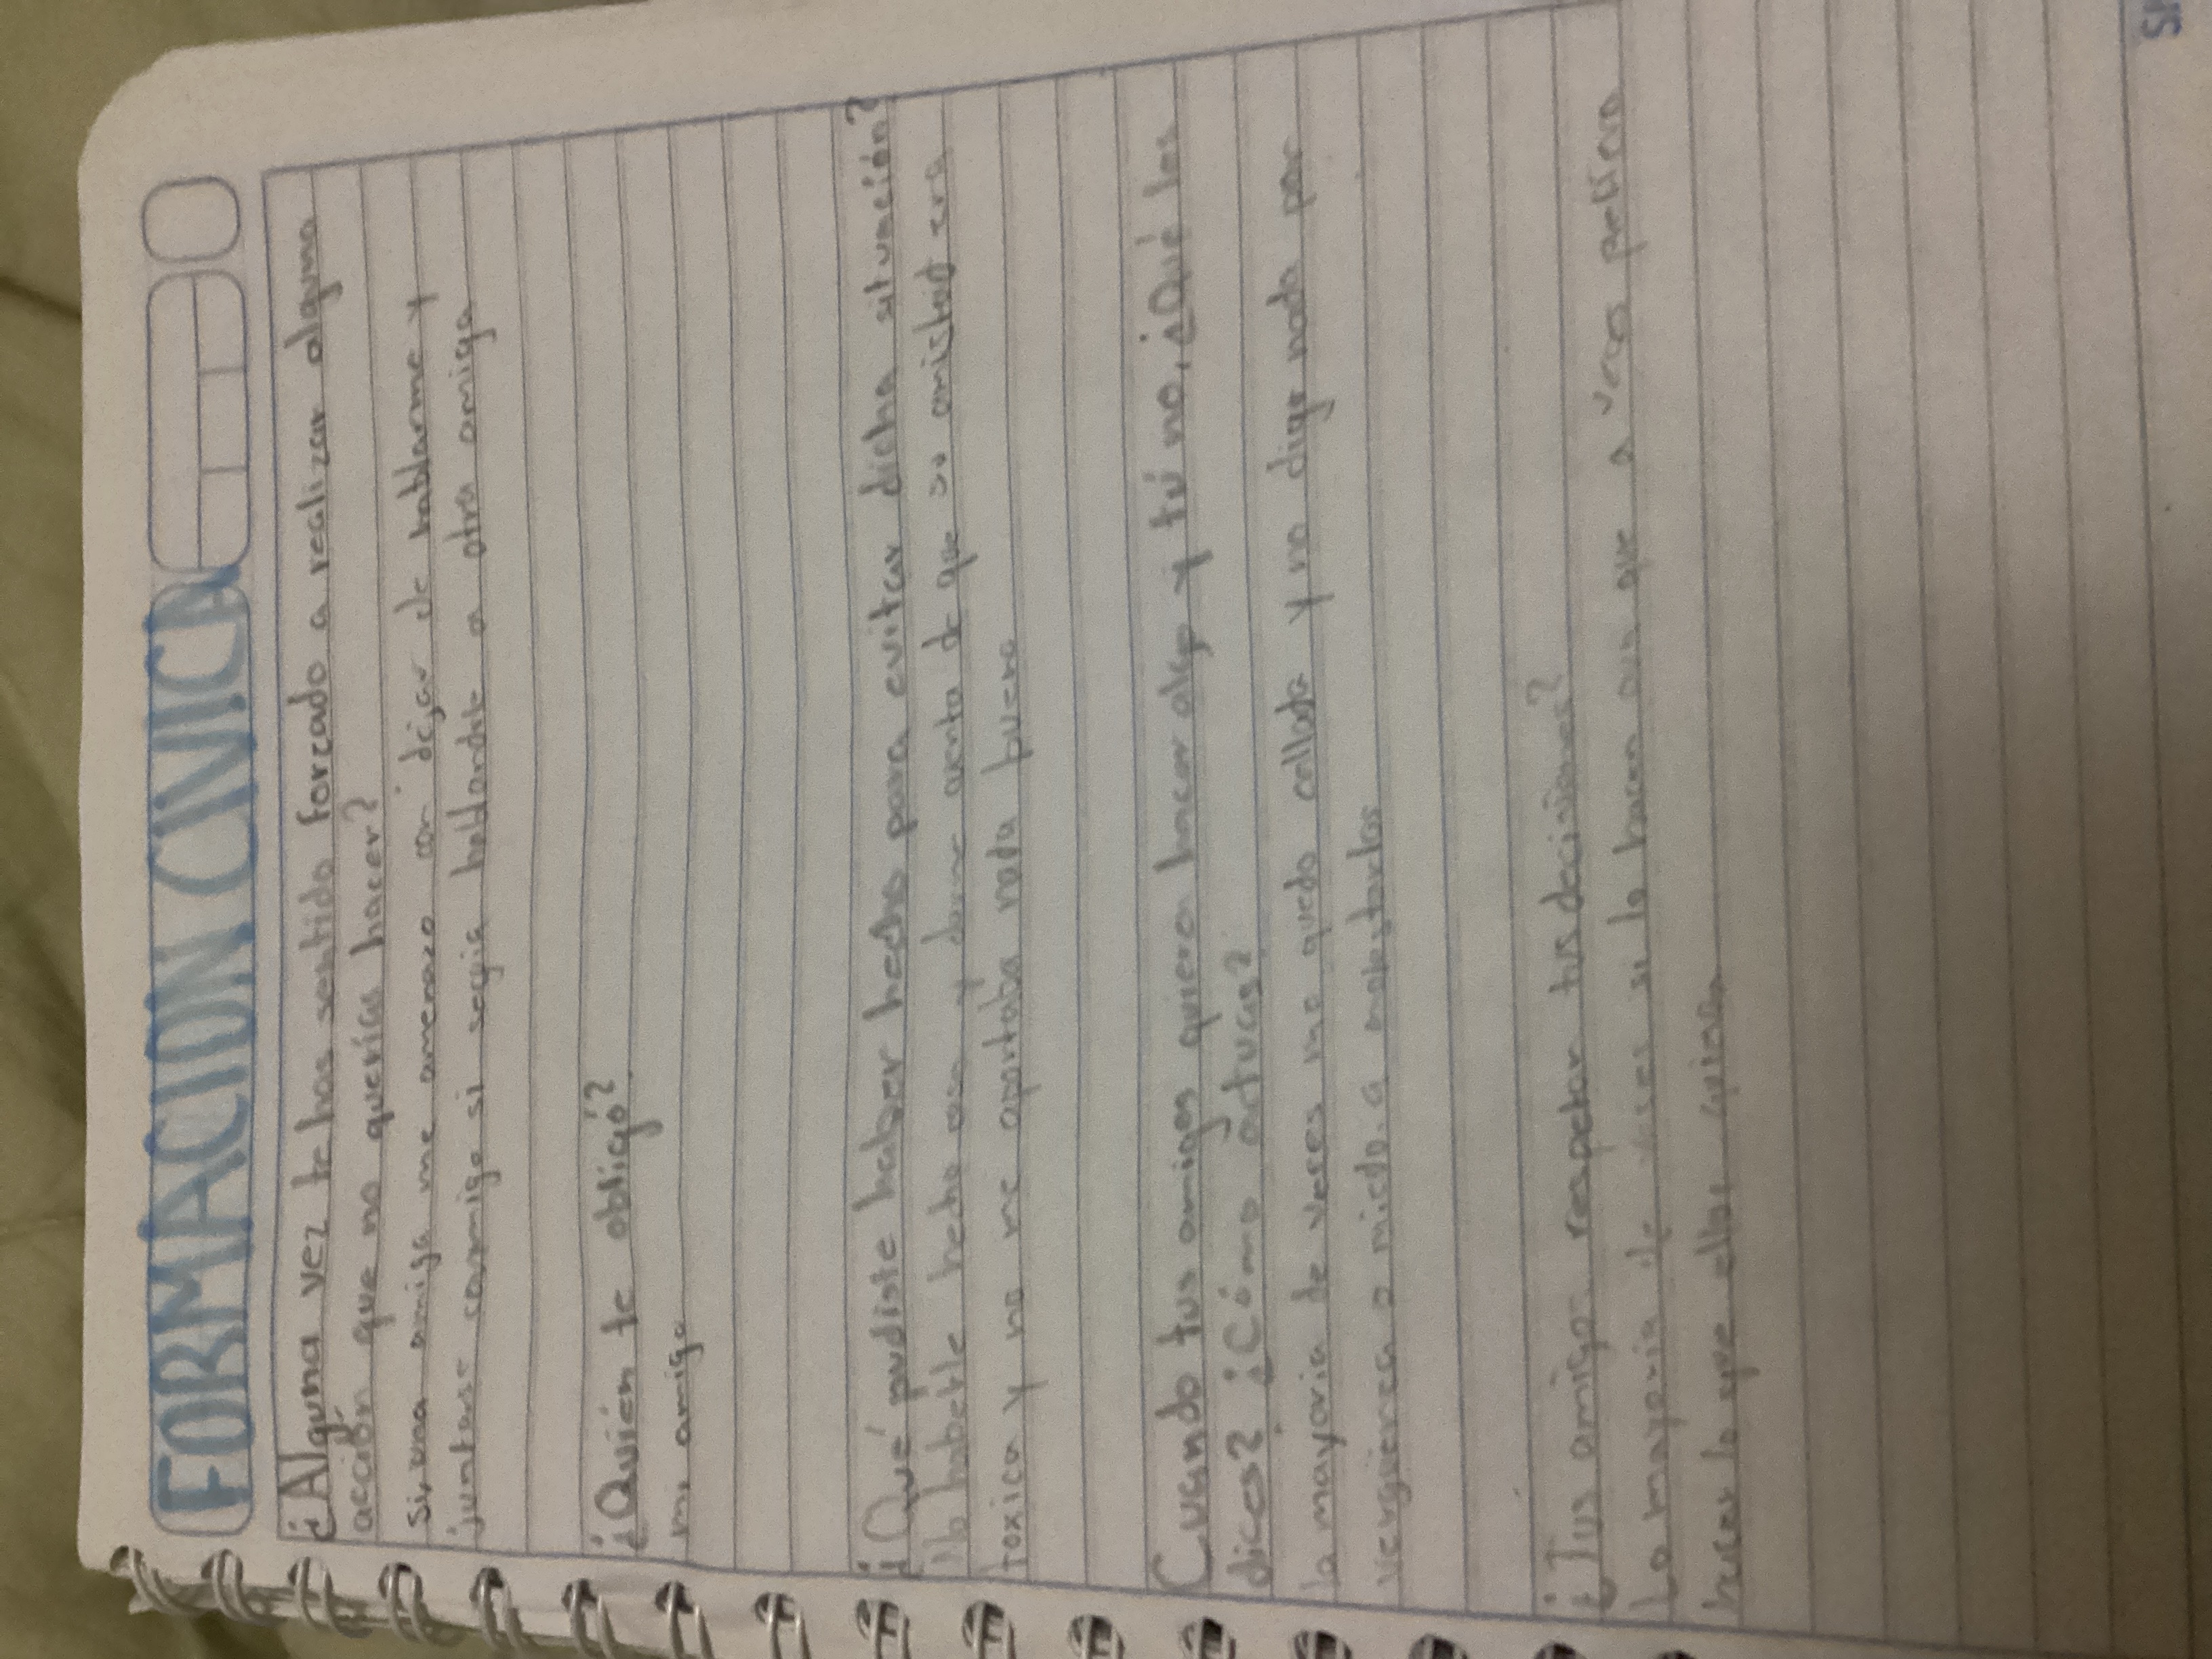 FORMACIÓN CÍVICA
¿Alguna vez te has sentido forzado a realizar alguna
acción que no querías hacer?
Si, una amiga me amenazo con dejar de hablarme y
juntarse conmigo si seguia hablandole a otra amiga
¿Quién te obligó?
mi amiga
¿Qué pudiste haber hecho para evitar dicha situación?
No haberle hecho caso y darme cuenta de que su amistad era
toxica y no me aportaba nada bueno
Cuando tus amigos quieren hacer algo y tú no, ¿Qué les
dices? ¿Cómo actuas?
la mayoria de veces me quedo callada y no digo nada por
vergüenza o miedo a molestarlos
¿Tus amigos respetan tus decisiones?
La mayoria de veces si lo hacen aun que a veces prefieren
hacer lo que ellos quieren